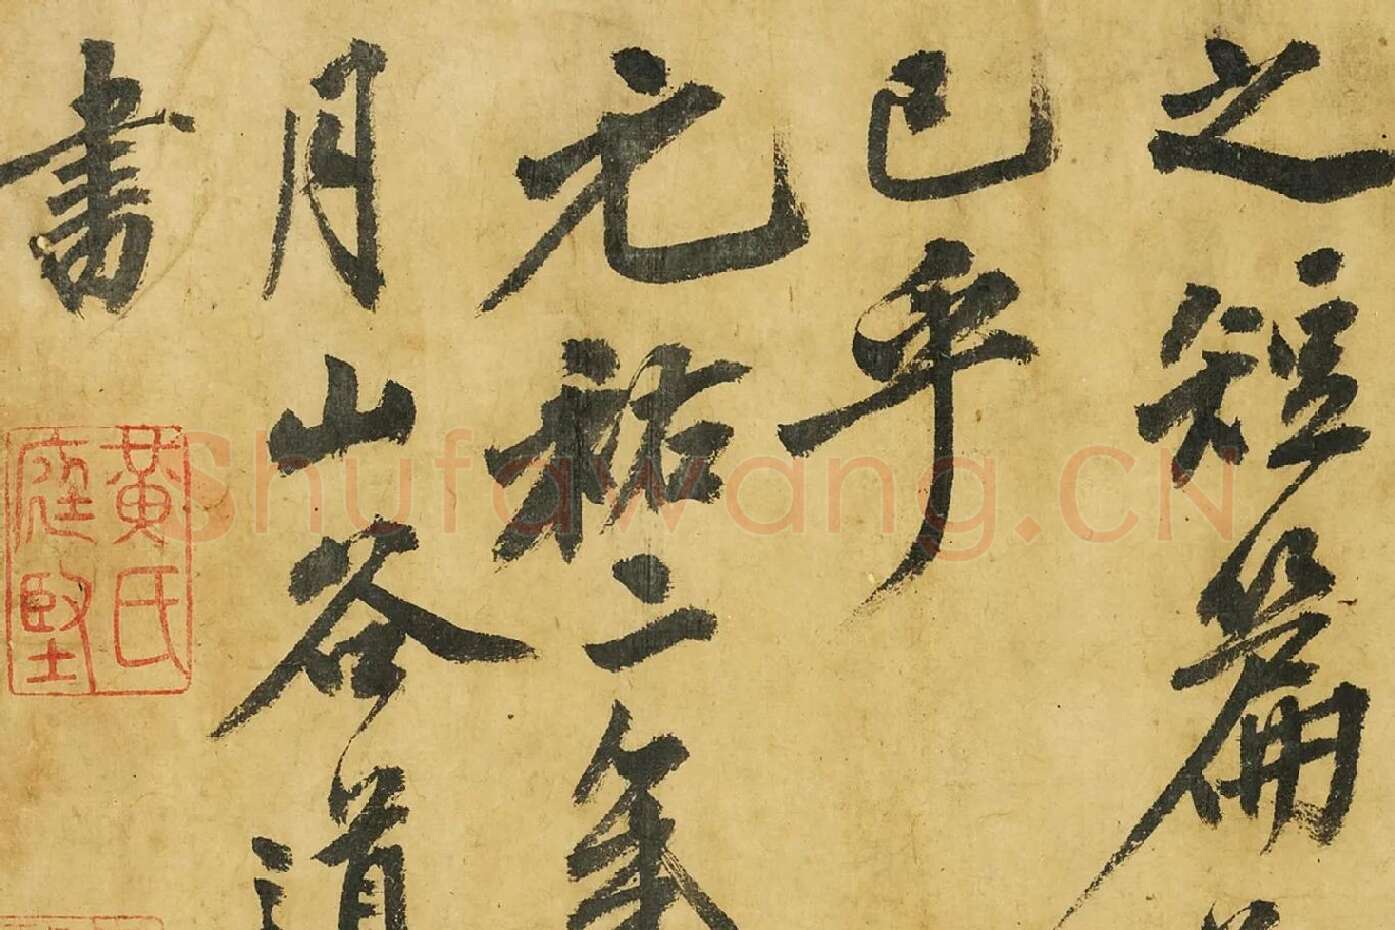 之短篇
已乎
元祐二年
月山谷道
書
黃氏庭堅
Shufawang.CN